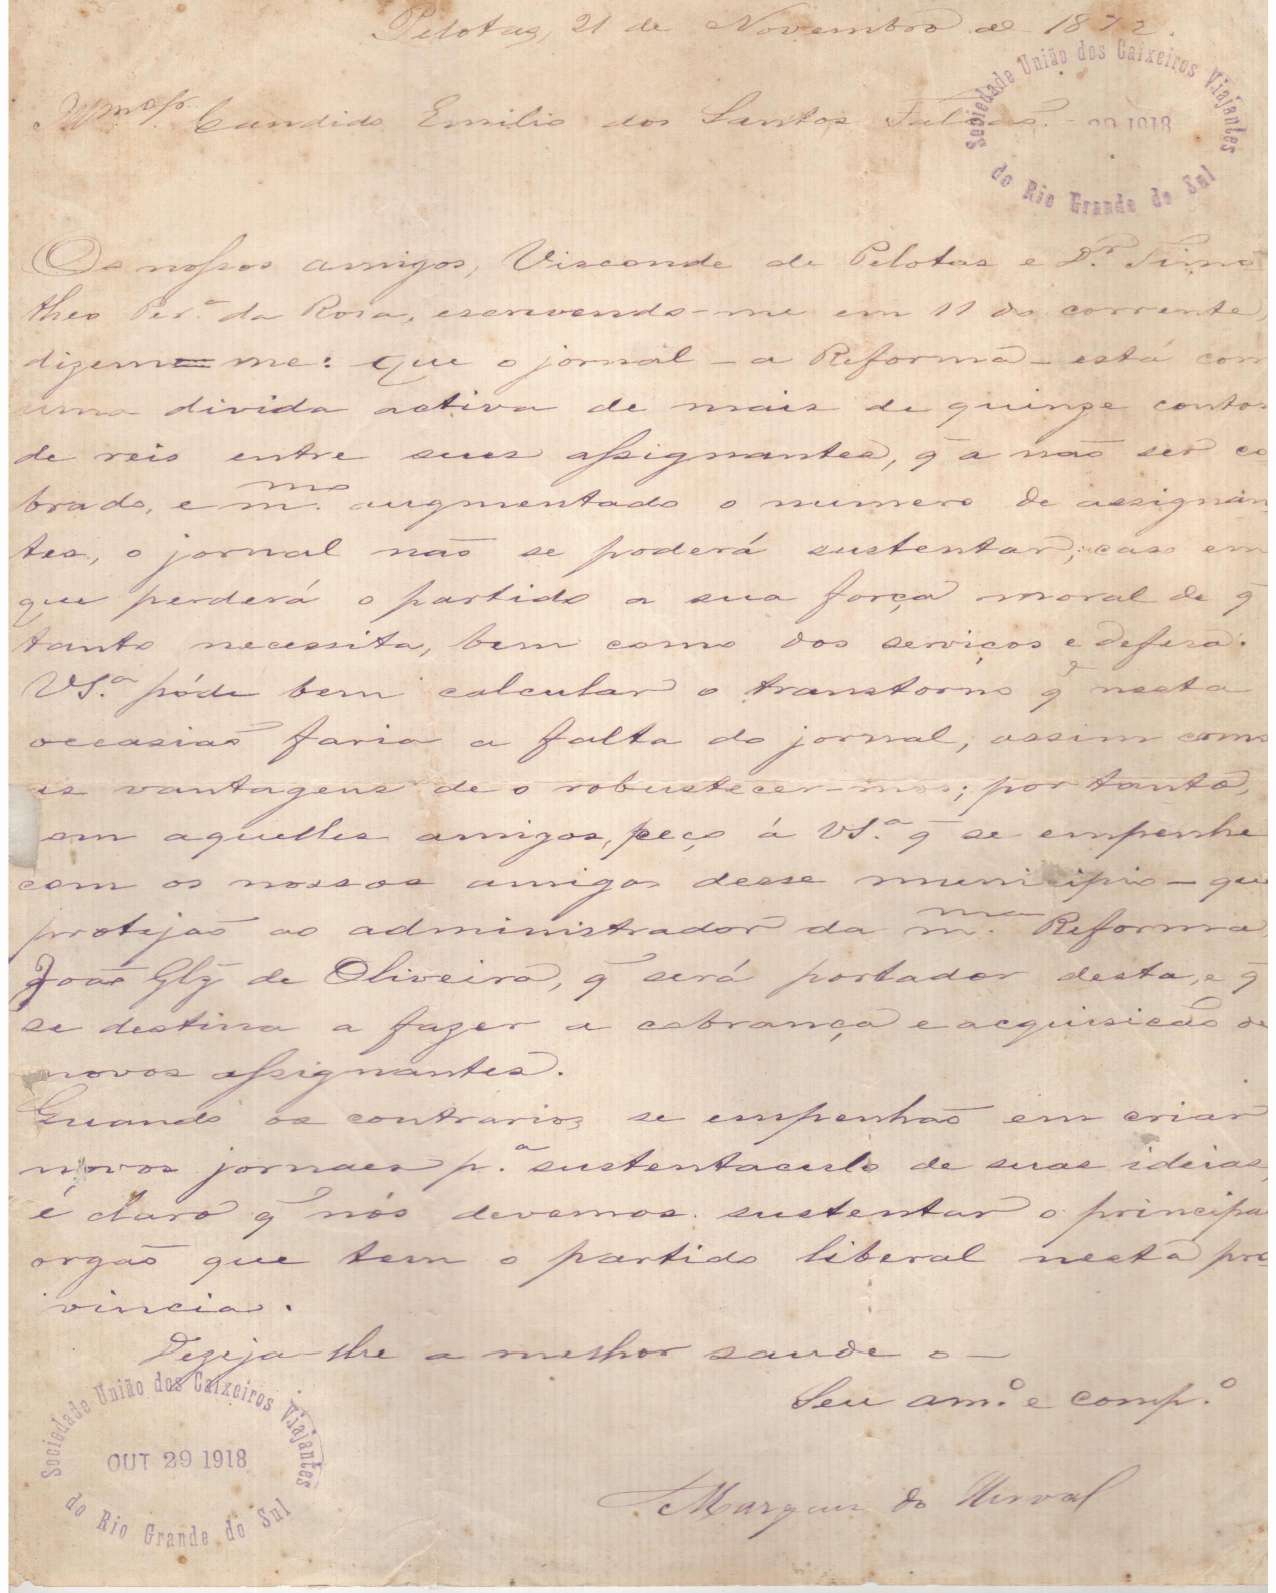 Pelotas, 21 de Novembro de 1872.
Sociedade União dos Caixeiros Viajantes
do Rio Grande do Sul
29 1918
Candido Emilio dos Santos
Os nossos amigos, Visconde de Pelotas e Dr. Timo
theo Per.ª da Rosa, escrevendo-me em 11 do corrente,
dizem=me: que o jornal - a Reforma - está com
uma divida activa de mais de quinze contos
de reis entre seus assignantes, q̃ a não ser co
brado, e m.mo augmentado o numero de assignan
tes, o jornal não se poderá sustentar; caso em
que perderá o partido a sua força moral de q̃
tanto necessita, bem como dos serviços e defesa.
VS.ª póde bem calcular o transtorno q̃ nesta
occasião faria a falta do jornal, assim como
as vantagens de o robustecer-mos; por tanto,
com aquelles amigos, peço á VS.ª q̃ se empenhe
com os nossos amigos desse municipio - que
protejão ao administrador da m.ma Reforma,
João Glz̃ de Oliveira, q̃ será portador desta, e q̃
se destina a fazer a cobrança e acquisicão de
novos assignantes.
Quando os contrarios se empenhão em criar
novos jornaes p.ª sustentaculo de suas ideias,
é claro q̃ nós devemos sustentar o principal
orgão que tem o partido liberal nesta pro
vincia.
Dezeja-lhe a melhor saude o -
Seu am.º e comp.º
Marquez do Herval
Sociedade União dos Caixeiros Viajantes
OUT 29 1918
do Rio Grande do Sul